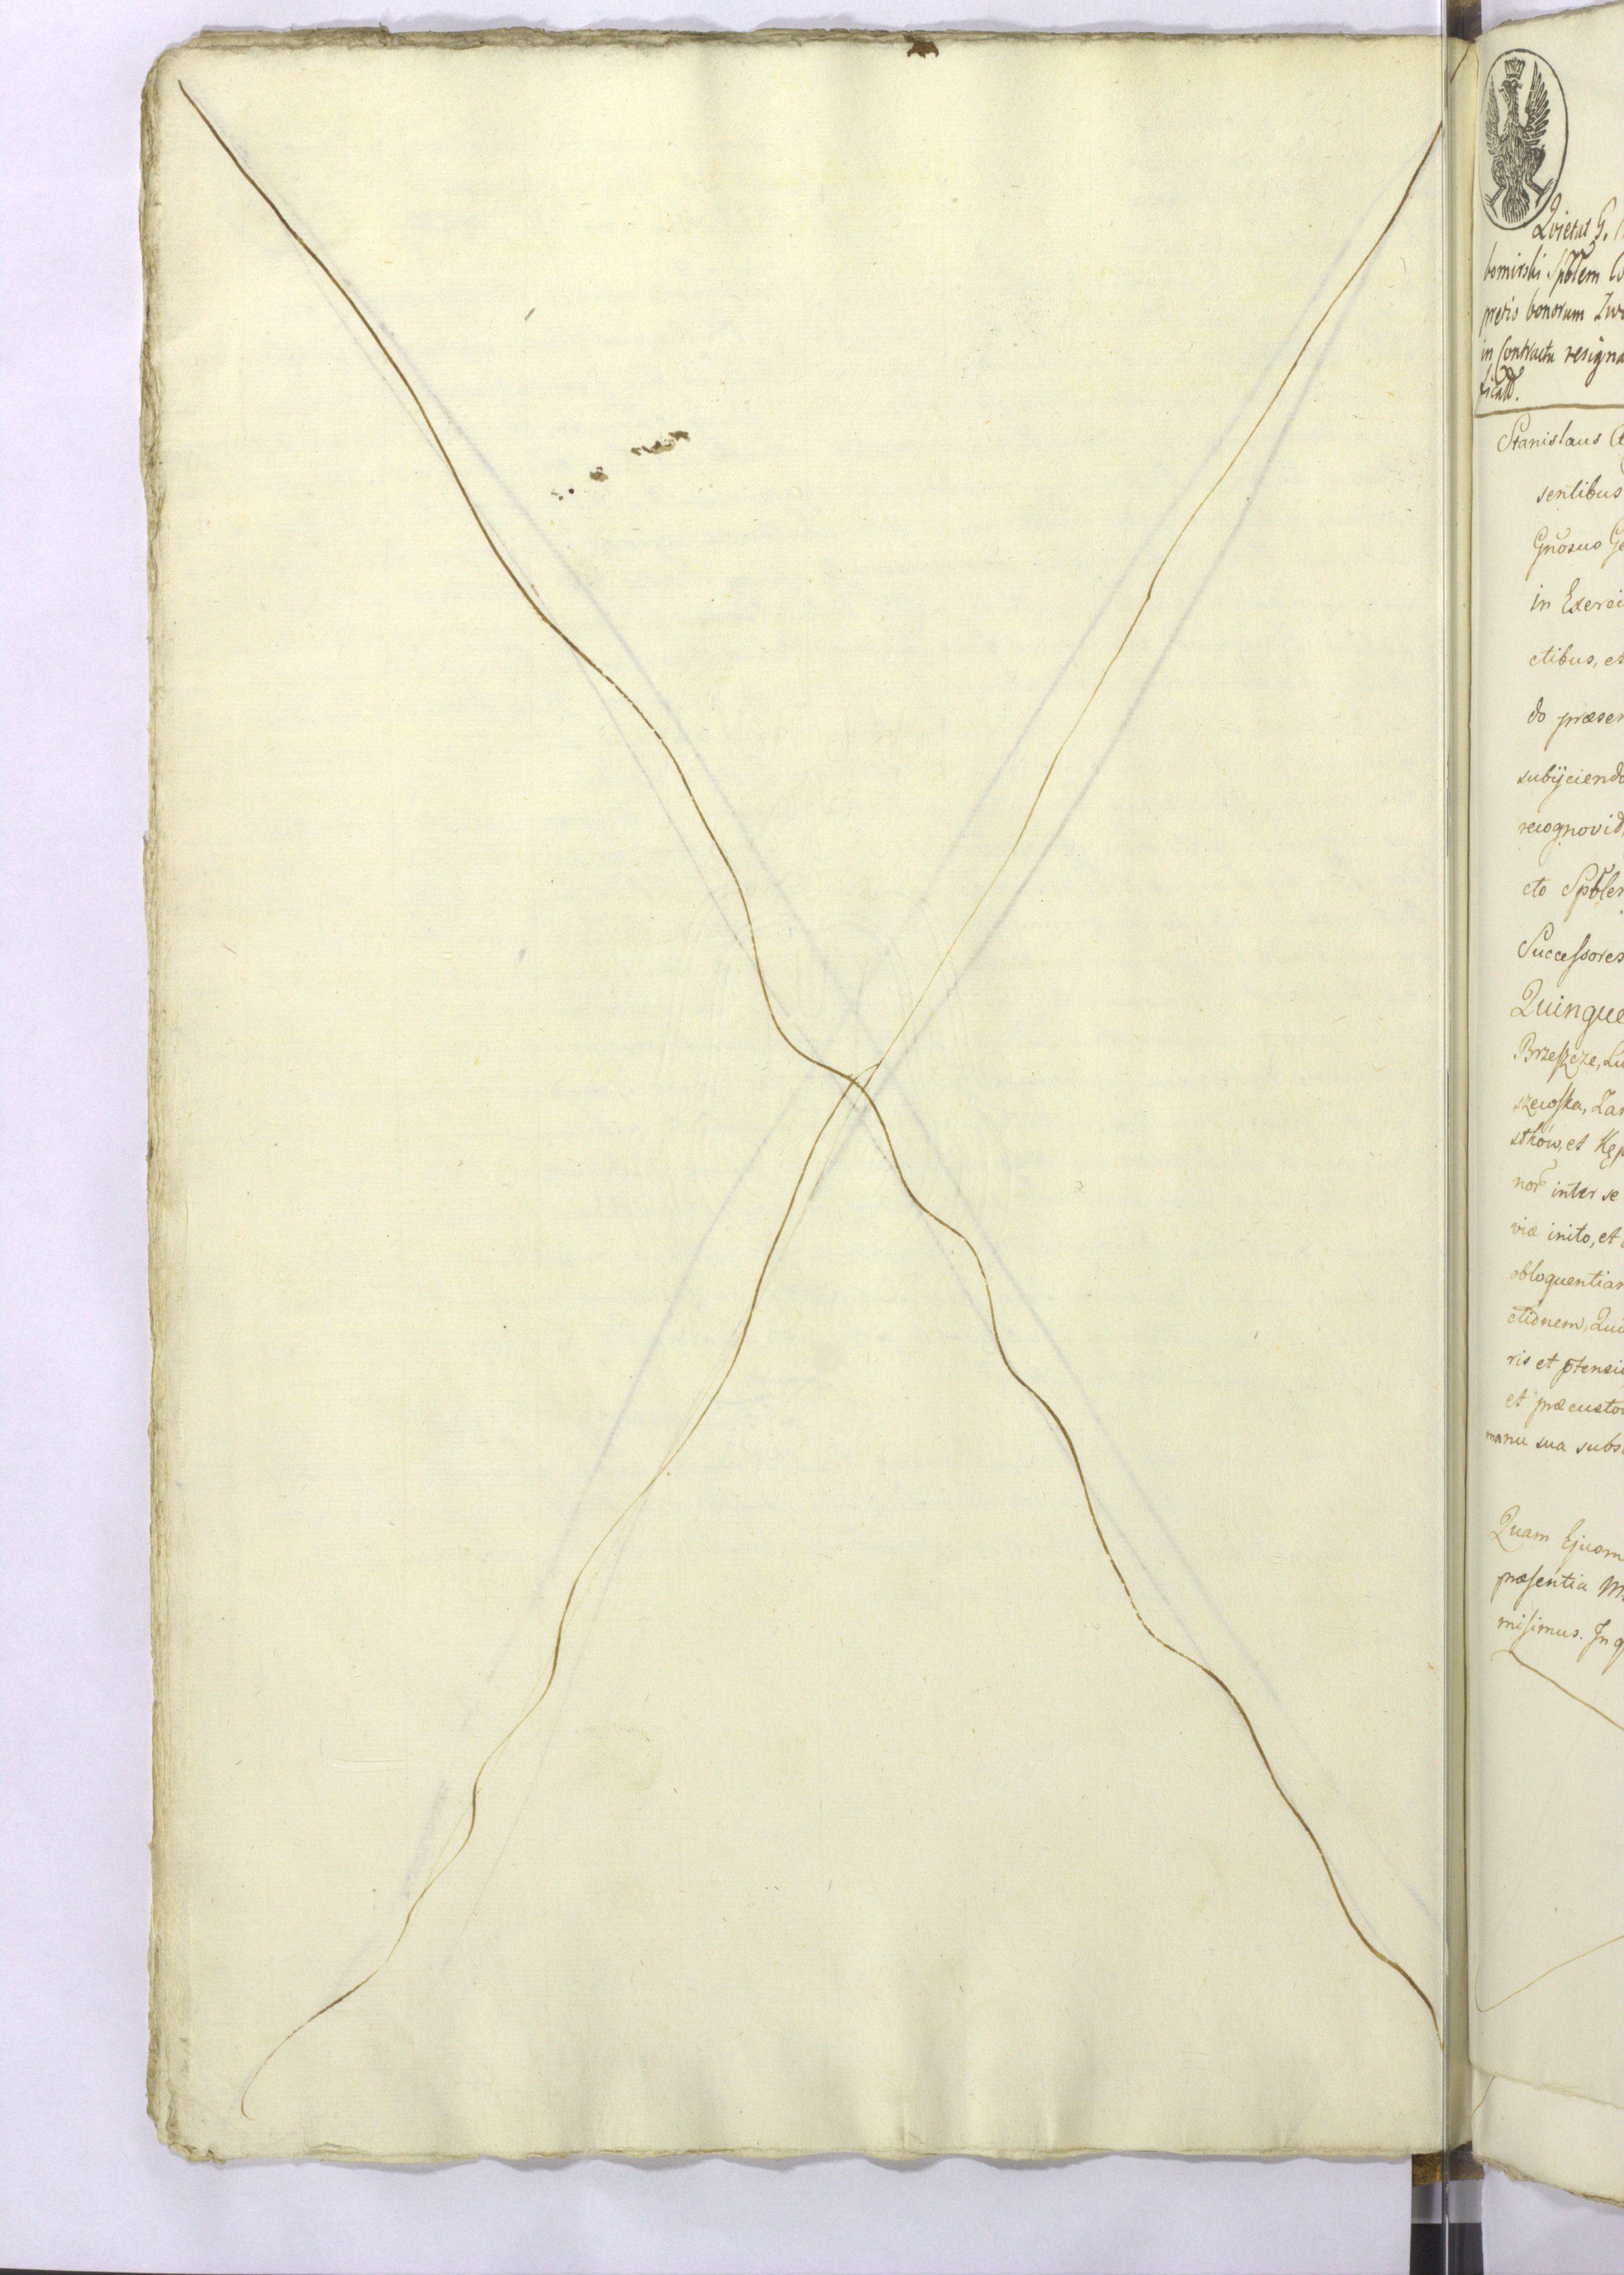 Quietat G.
bomirski Spblem
pretio bonorum
in Contractu resigna
ficatt.
Stanislaus
sentibus
Gnosus Ge
in Exerci
ctibus, et
do præsen
subijciendo
recognovit
cto Spblem
Successores
Quinque
Brzeszcze, Lu
szewska, Zar
stków, et Kęp
nor inter se
viæ inito, et
obloquentiam
ctionem, Qui
ris et
et præcusto
manu sua subs
Quam Ejusm
præsentia M
misimus. In q